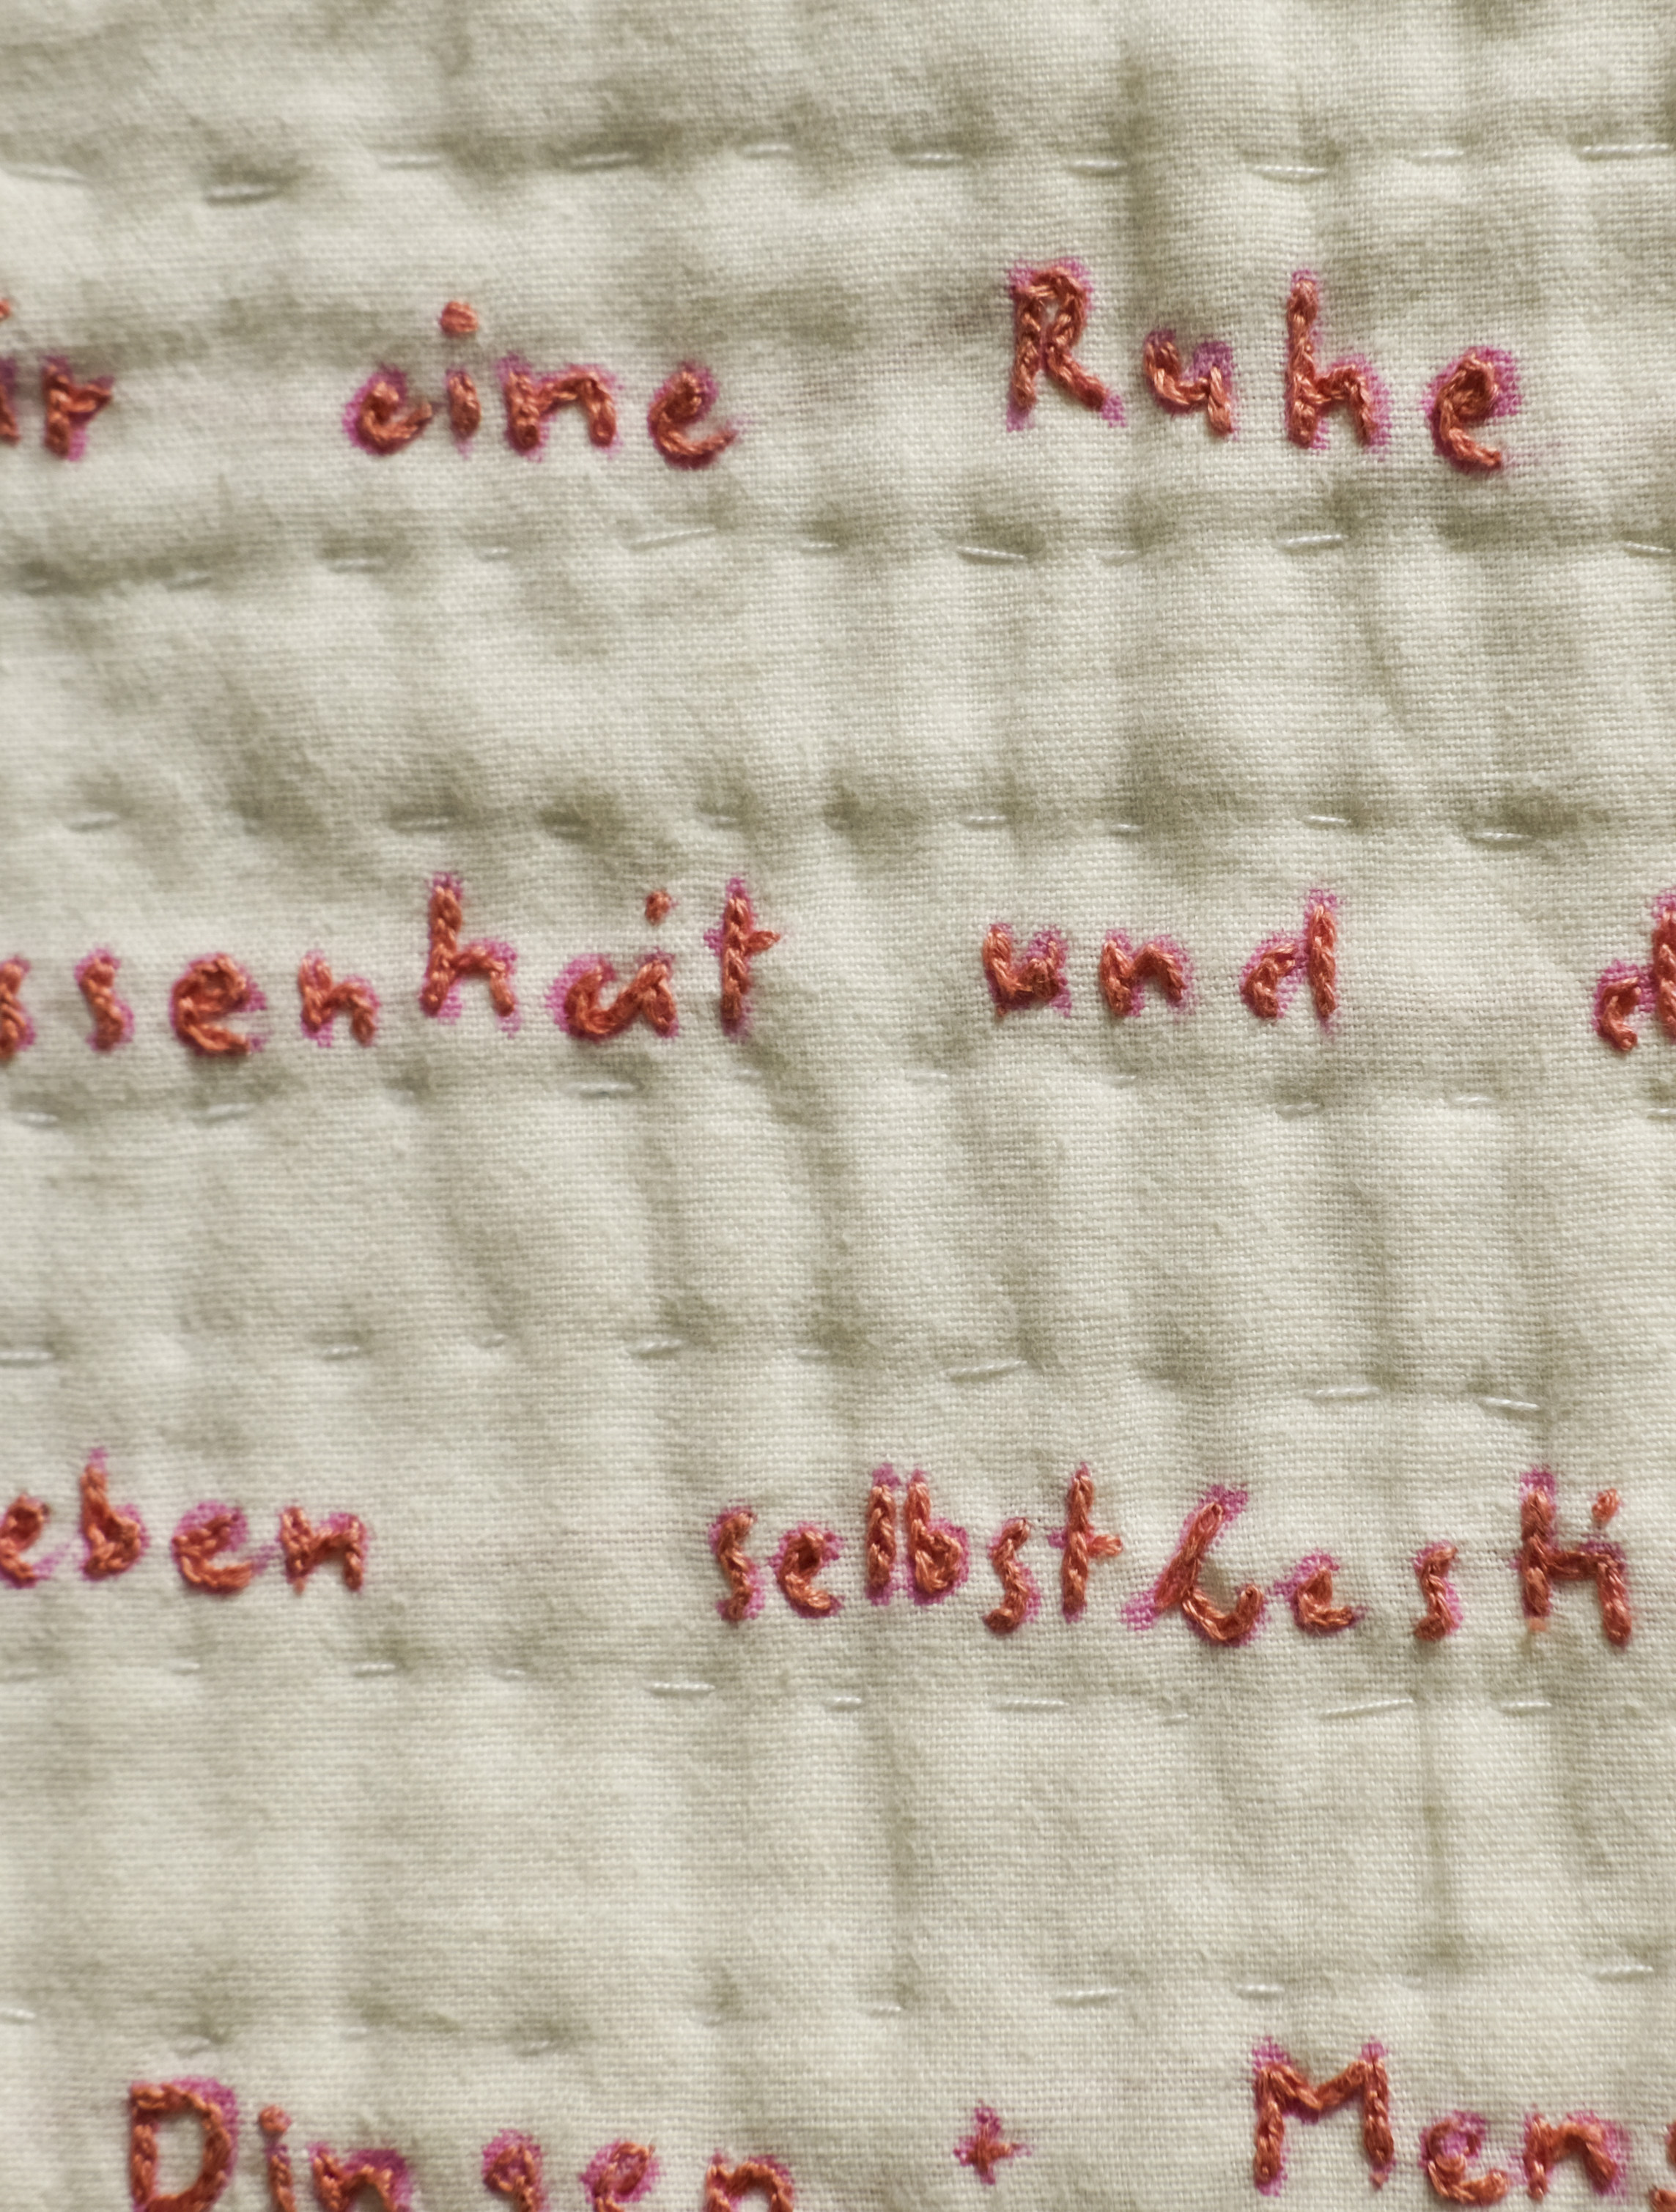 ir eine Ruhe
ssenheit und d
eben selbstbesti
Dingen + Men